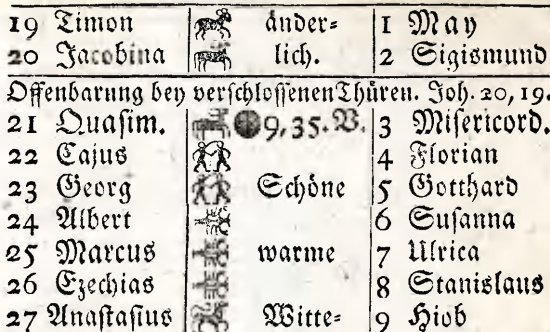 19 Timon änder= 1 May
20 Jacobina lich. 2 Sigismund
Offenbarung bey verschlossenen Thüren. Joh. 20, 19.
21 Quasim. 9, 35. V. 3 Misericord.
22 Cajus 4 Florian
23 Georg Schöne 5 Gotthard
24 Albert 6 Susanna
25 Marcus warme 7 Ulrica
26 Ezechias 8 Stanislaus
27 Anastasius Witte= 9 Hiob